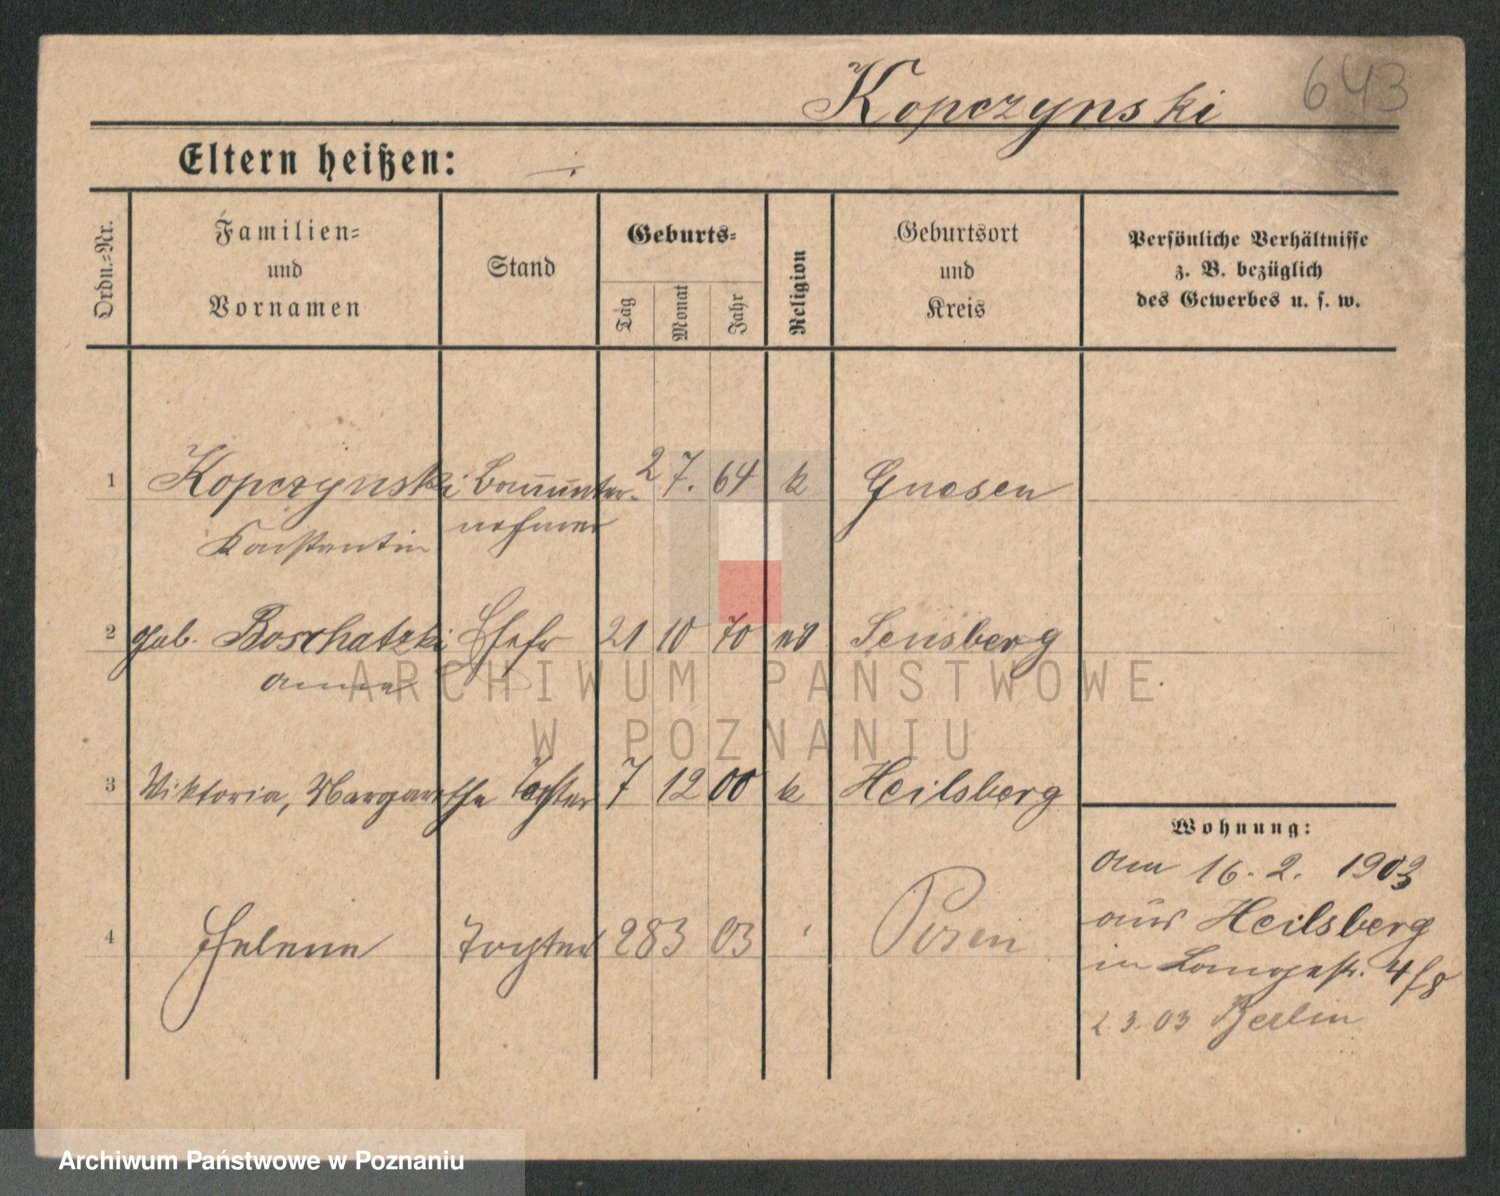 643
Kopczynski
Eltern heißen: ./.
Ordn.-Nr.
Familien-
und
Vornamen
Stand
Geburts-
Tag
Monat
Jahr
Religion
Geburtsort
und
Kreis
Persönliche Verhältnisse
z. B. bezüglich
des Gewerbes u. s. w.
1 Kopczynski Bauunter- 2 7. 64 k Gnesen
Konstantin nehmer
2 geb. Boschatzki Ehefr 21 10 70 Sensberg
Anna
ARCHIWUM PAŃSTWOWE
W POZNANIU
3 Viktoria, Margarethe Tochter 7 12 00 k Heilsberg
Wohnung:
am 16. 2. 1903
4 Helene Tochter 28 3 03 Posen
aus Heilsberg
in Langestr. 4
2 3. 03 Berlin
Archiwum Państwowe w Poznaniu